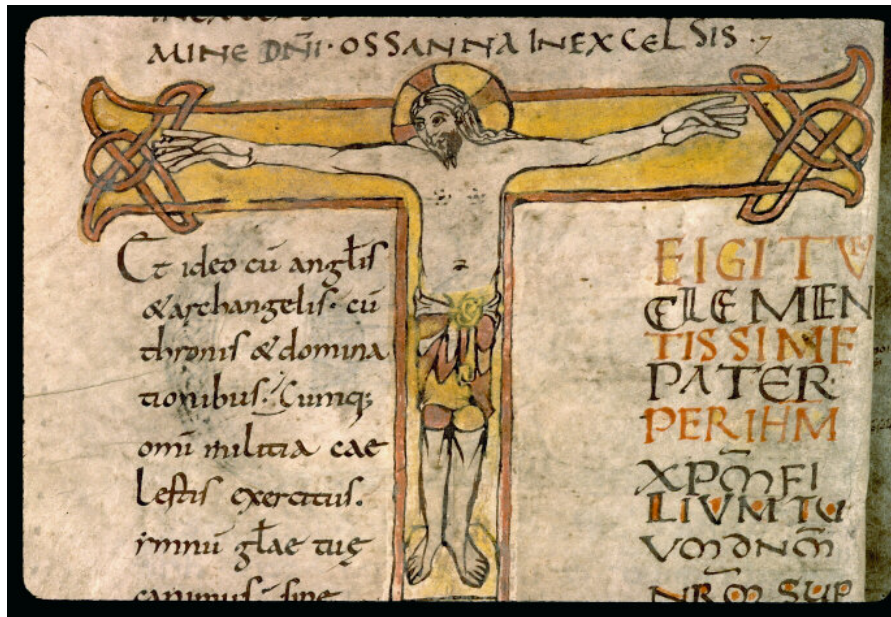 AMINE DN̄I · OSSANNA IN EXCELSIS ·
Et ideo cū angłis
& archangelis · cū
thronis & domina
tionibus · Cumq;
omī militia cae
lestis exercitus ·
ymnū głae tuę
canimus · sine
E IGITUR
CLEMEN
TISSIME
PATER ·
PER IHM̄
XPM̄ FI
LIUM TU
UM DNM̄
NRM̄ SUP